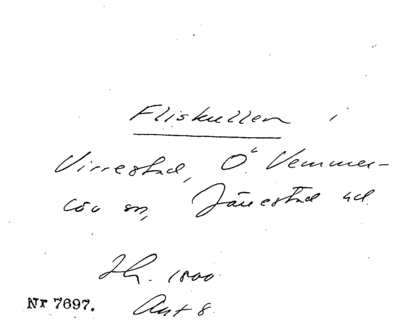 Fliskullen i
Virrestad, Ö. Vemmer-
löv sn, Järrestad hd.
Jh. 1800
Nr 7697. Ant 8.